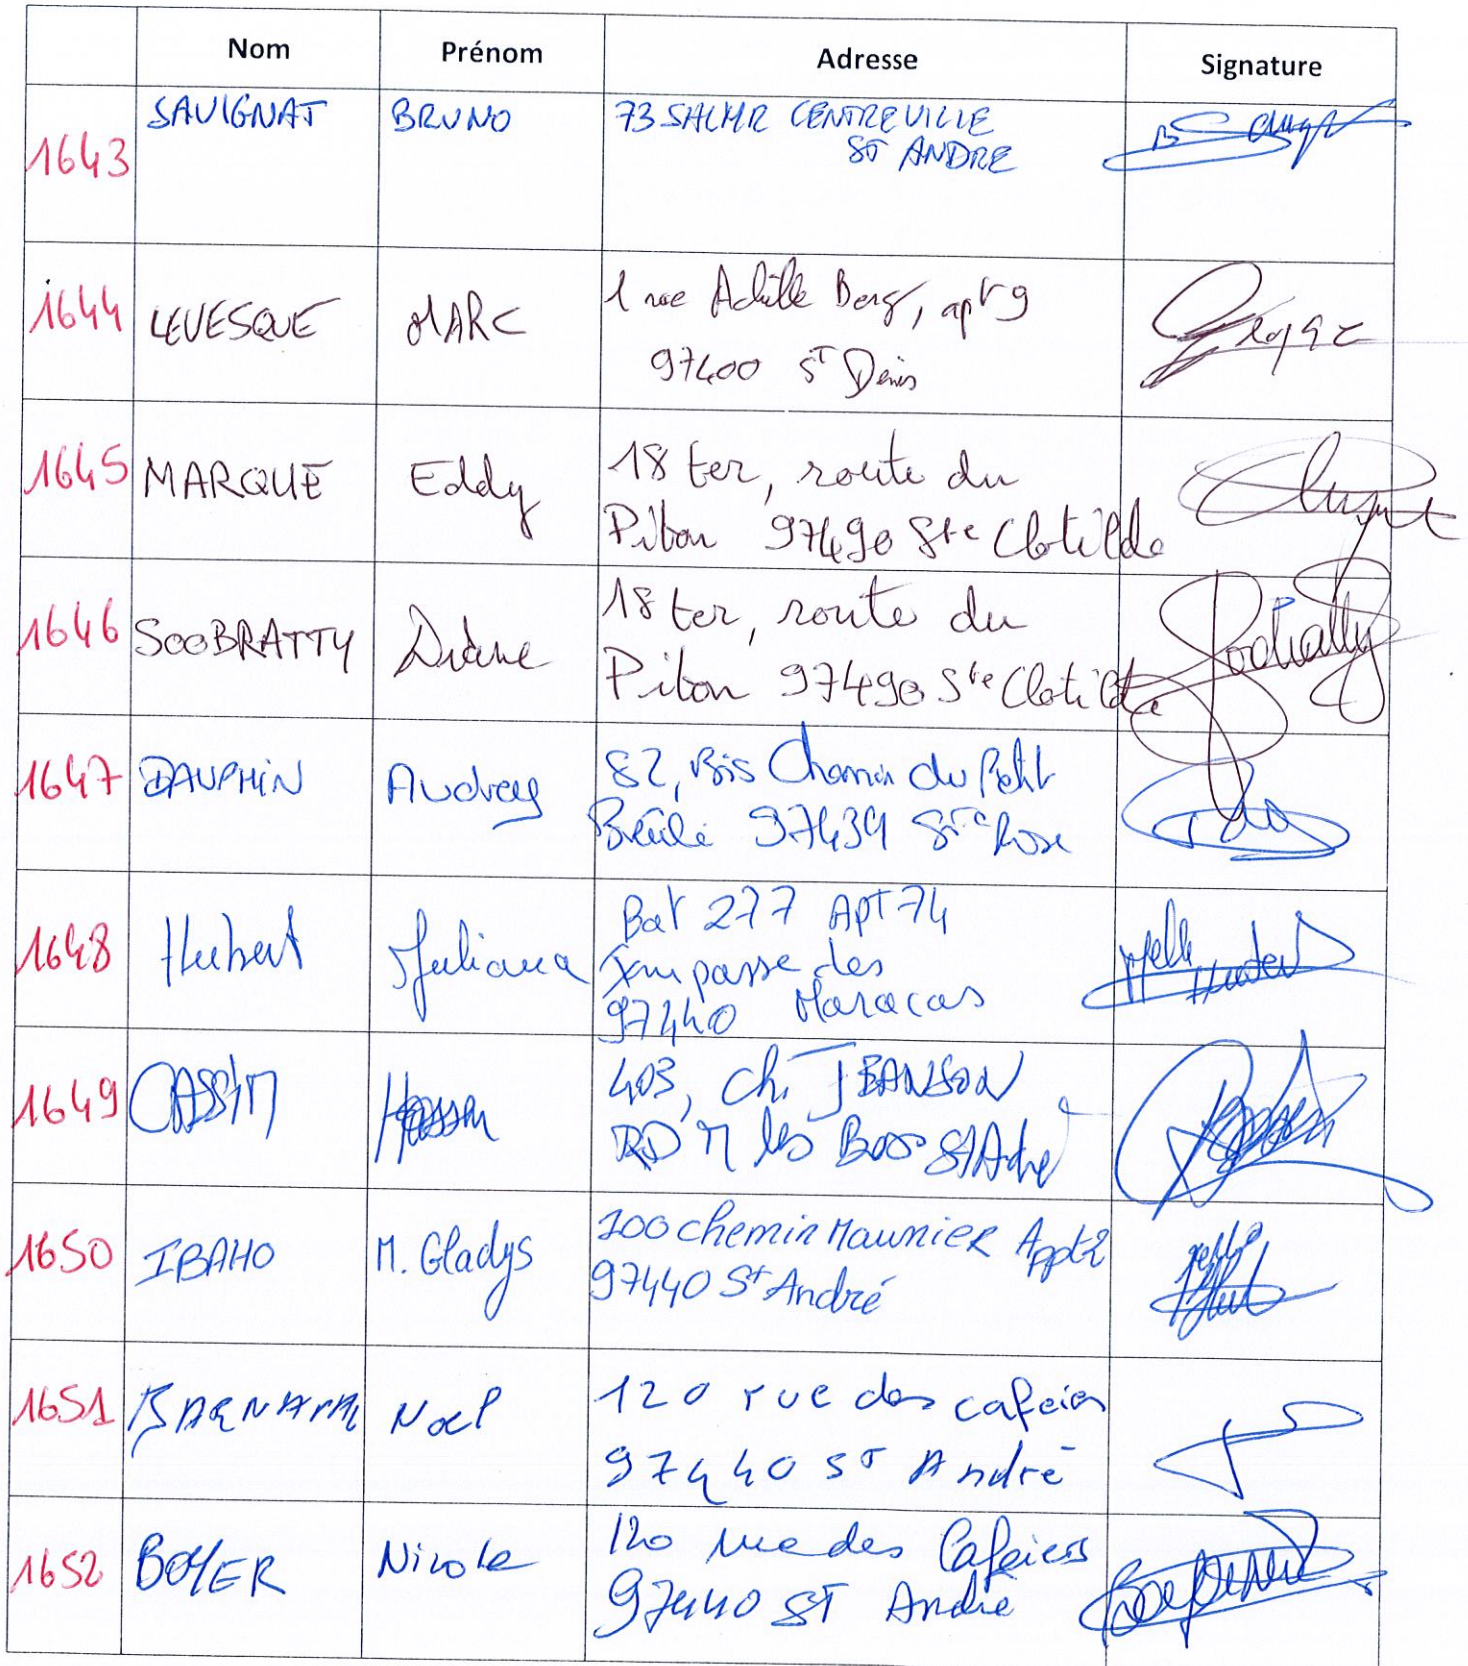 Nom Prénom Adresse Signature
1643 SAVIGNAT BRUNO 73 SHLMR CENTREVILLE
ST ANDRE
1644 LEVESQUE MARC 1 rue Achille Berg, apt 9
97400 ST Denis
1645 MARQUE Eddy 18 ter, route du
Piton 97490 Ste Clotilde
1646 SOOBRATTY Diane 18 ter, route du
Piton 97490 Ste Clotilde
1647 DAUPHIN Audrey 82, Bis Chemin du Petit
Brûlé 97439 Ste Rose
1648 Hubert Juliana Bat 277 APT 74
Impasse des
97440 Maracas
1649 CASSIM Hassan 403, Ch. JEANSON
les St André
1650 IBAHO M. Gladys 100 chemin Maunier Appt 2
97440 St André
1651 Noel 120 rue des cafeiers
97440 ST André
1652 BOYER Nicole 120 rue des Cafeiers
97440 ST André